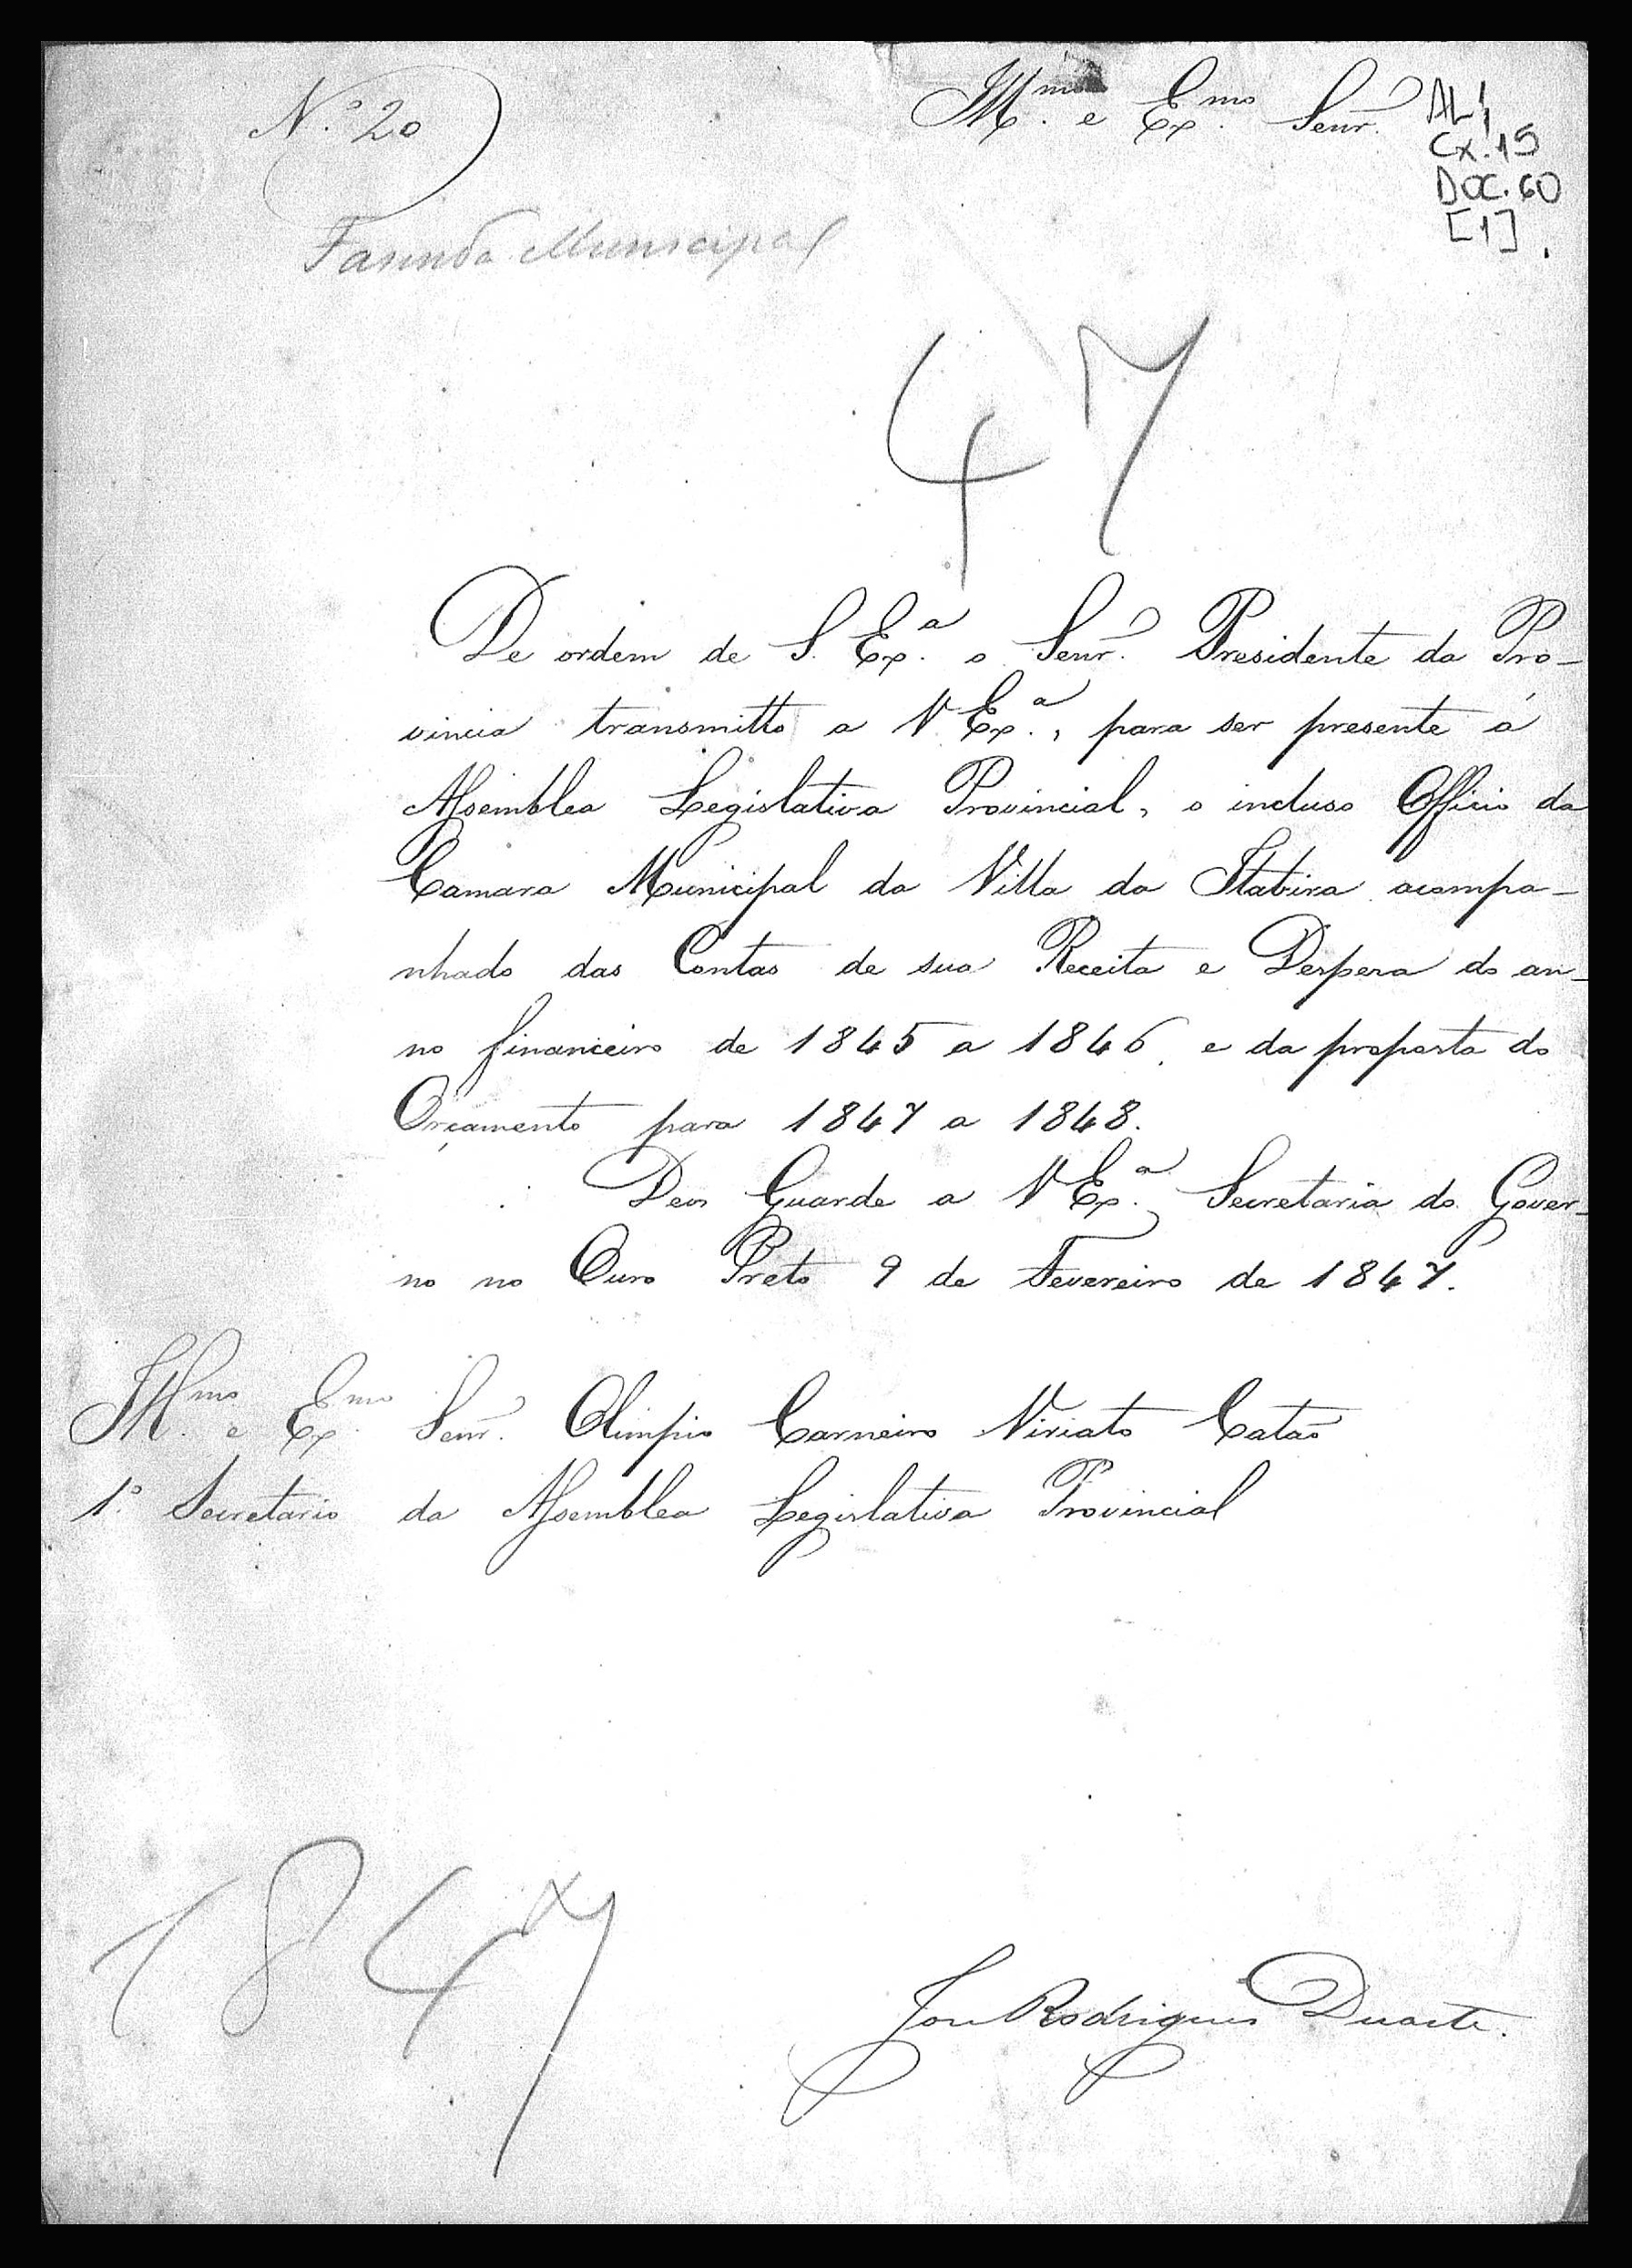 N.º 20
Ill.mo e Ex.mo Senr.
AL 1
Cx. 15
DOC. 60
[1]
Fasenda Municipal
47
De ordem de S. Ex.a o Senr. Presidente da Pro-
vincia transmitto a V Ex.a, para ser presente á
Assemblea Legislativa Provincial, o incluso Officio da
Camara Municipal da Villa da Itabira acompa-
nhado das Contas de sua Receita e Despesa do an-
no financeiro de 1845 a 1846, e da proposta do
Orçamento para 1847 a 1848.
Deos Guarde a V Ex.a Secretaria do Gover-
no no Ouro Preto 9 de Fevereiro de 1847.
Ill.mo e Ex.mo Senr. Olimpio Carneiro Viriato Catão
1.º Secretario da Assemblea Legislativa Provincial
1847
José Rodrigues Duarte.